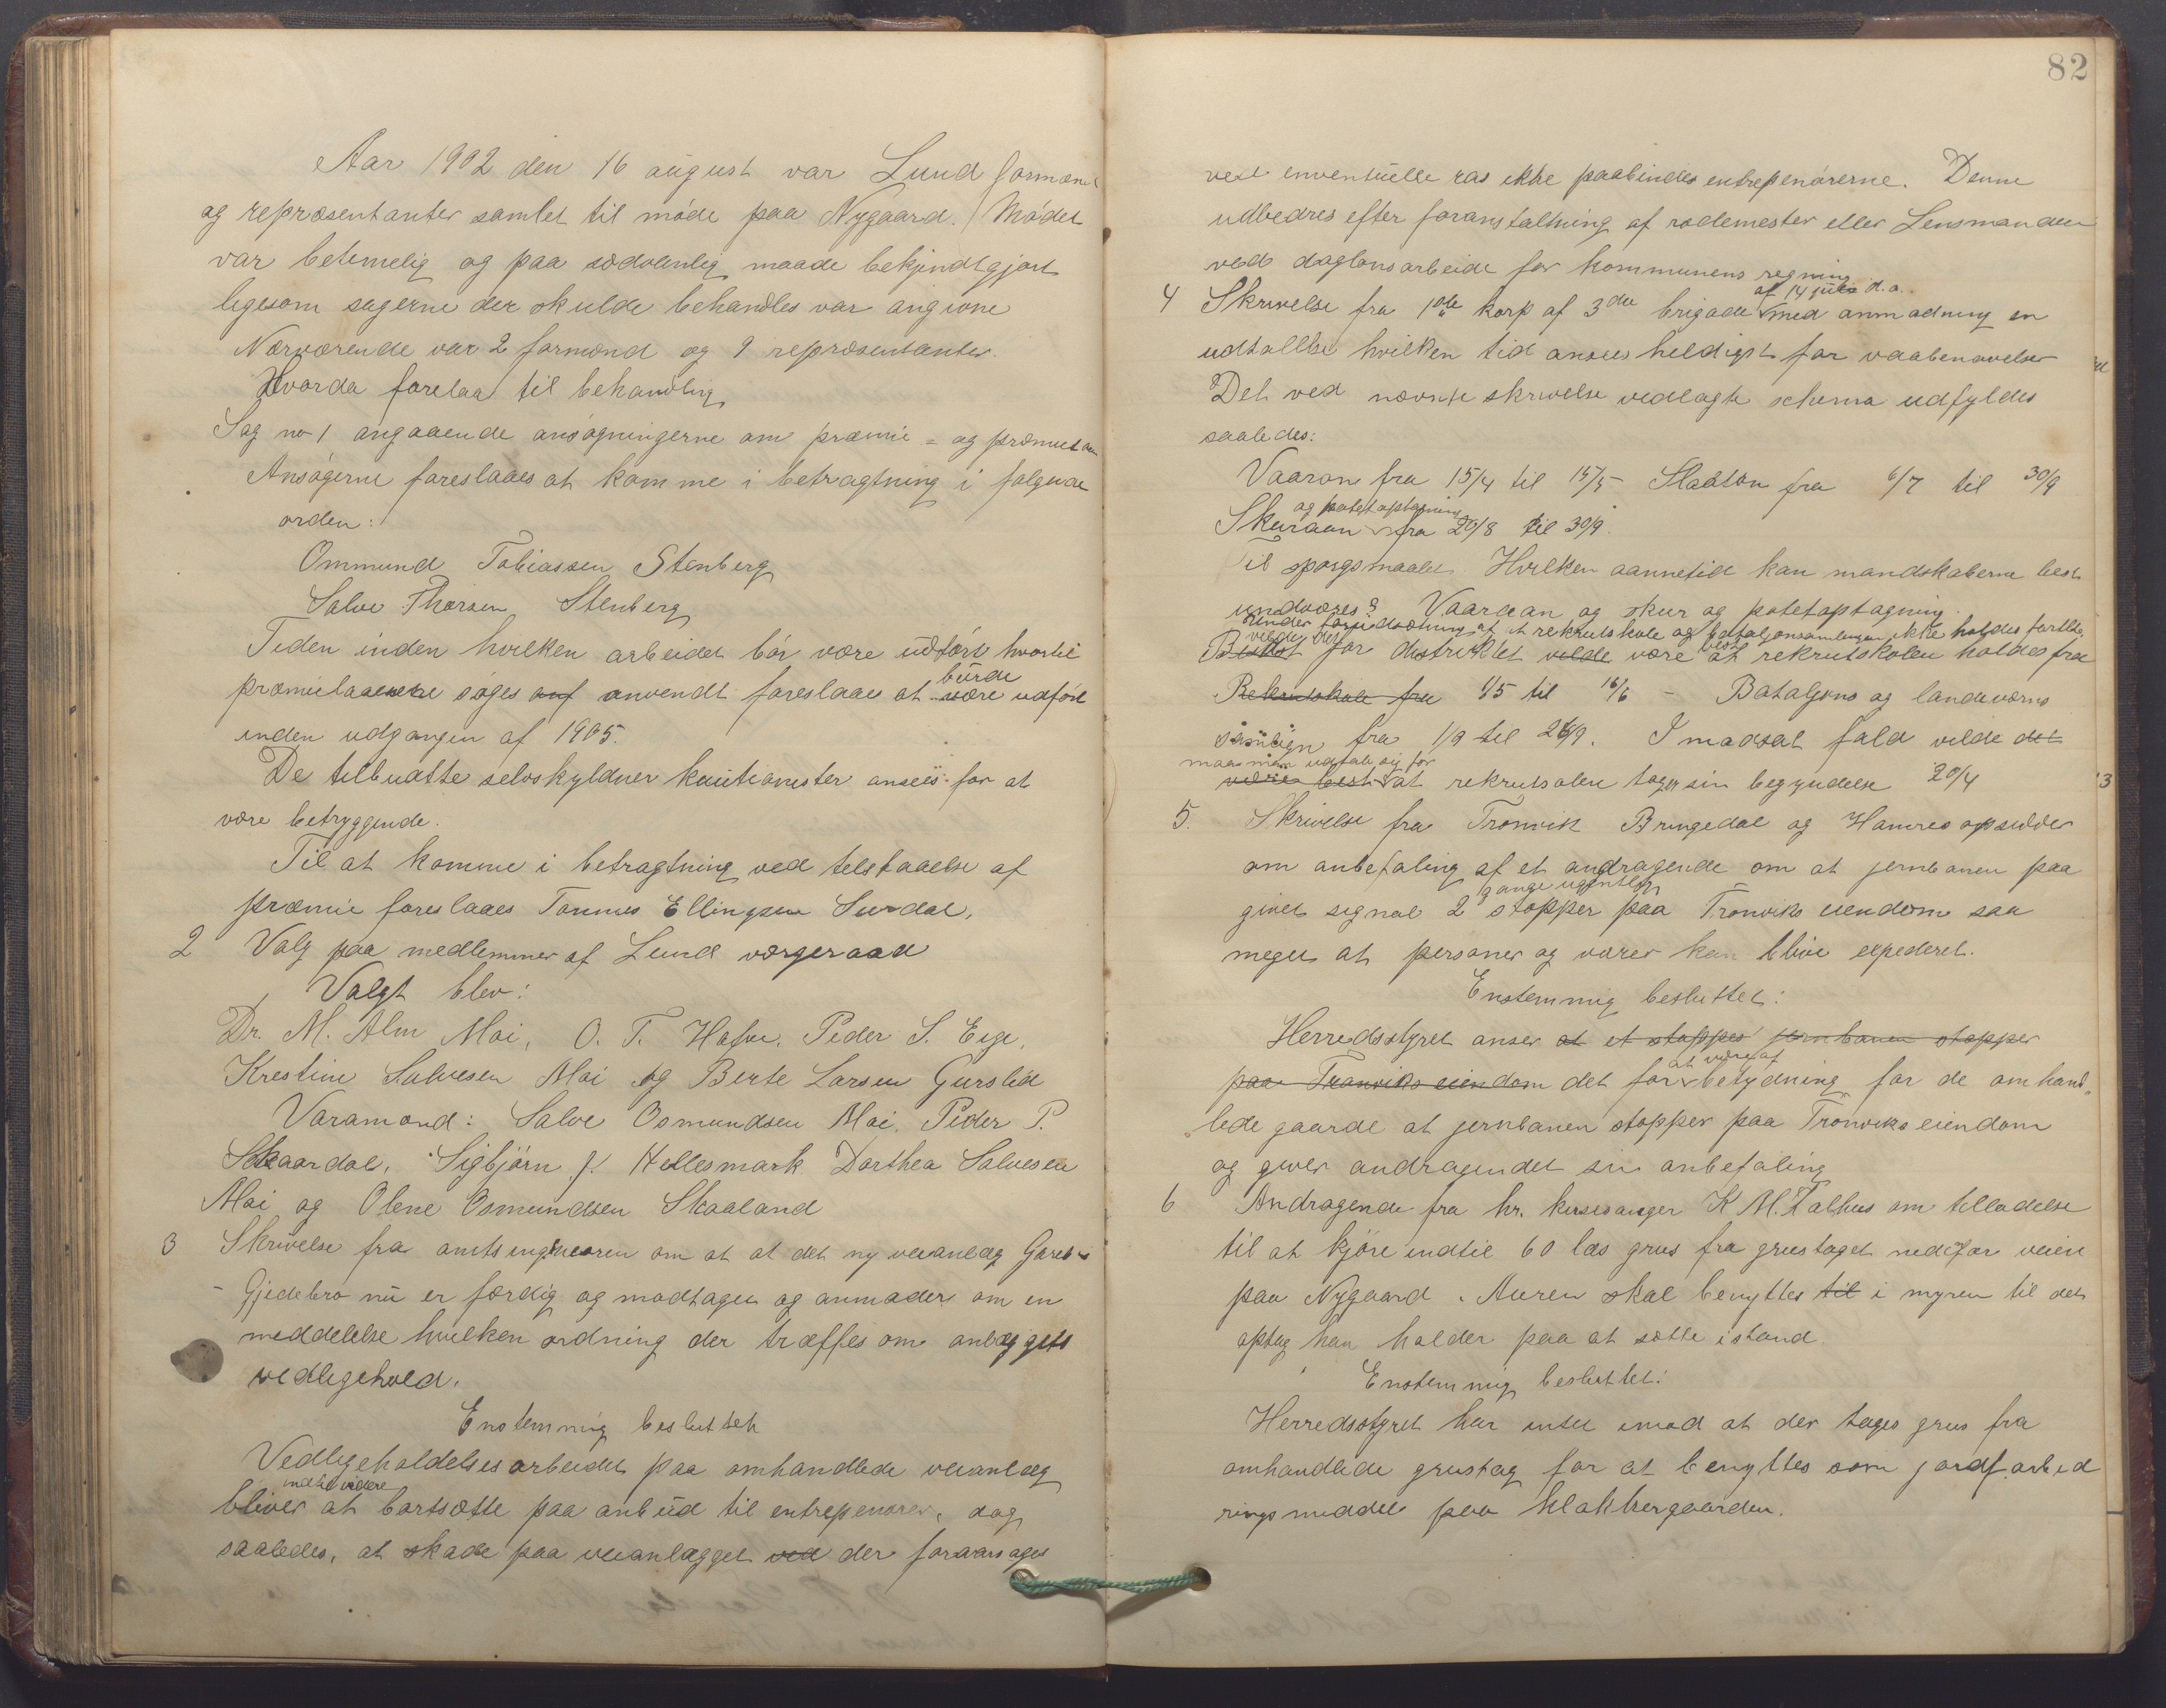 Aar 1902 den 16 august var Lund formænd
og repræsentanter samlet til møde paa Nygaard. Mødet
var betimelig og paa sædvanlig maade bekjendtgjort
ligesom sagerne der skulde behandles var angivne
Nærværende var 2 formænd og 9 repræsentanter.
Hvorda forelaa til behandling
Sag no 1 angaaende ansøgningerne om præmie = og præmielaan
Ansøgerne foreslaaes at komme i betragtning i følgende
orden:
Ommund Tobiassen Stenberg
Salve Thorsen Stenberg
Tiden inden hvilken arbeidet bør være udført hvortil
burde
præmielaanene søges anvendt foreslaaes at være udført
inden udgangen af 1905.
De tilbudte selvskyldner kautionister ansees for at
være betryggende.
Til at komme i betragtning ved tilstaaelse af
præmie foreslaaes Tønnes Ellingsen Surdal,
2 Valg paa medlemmer af Lund værgeraad
Valgt blev:
Dr. M. Alm Moi, O. T. Hafsø, Peder S. Eige,
Krestine Salvesen Moi og Berte Larsen Gursli
Varamænd: Salve Osmundsen Moi, Peder P.
Skaardal, Sigbjørn J. Hellesmark Dorthea Salvesen
Moi og Olene Osmundsen Skaaland
3 Skrivelse fra amtsingeniøren om at at det ny veianlæg
- Gjedebro nu er færdig og modtaget og anmoder om en
meddelelse hvilken ordning der træffes om anlæggets
vedligehold.
Enstemmig besluttet
Vedligeholdelsesarbeidet paa omhandlede veianlæg
indtil videre
bliver at bortsætte paa anbud til entrepenører, dog
saaledes, at skade paa veianlægget ved der foraarsages
82
ved eventuelle ras ikke paabindes entrepenørerne. Denne
udbedres efter foranstaltning af rodemester eller Lensmanden
ved daglønsarbeide for kommunens regning
af 14 juli d.a.
4 Skrivelse fra 1ste korp af 3die brigade med anmodning en
udtallelse hvilken tid ansees heldigst for vaabenøvelser
Det ved nævnte skrivelse vedlagte schema udfyldes
saaledes:
Vaaron fra 15/4 til 15/5 Slaaton fra 6/7 til 30/9
og potetoptagning
Skuraan fra 20/8 til 30/9.
Til spørgsmaalet Hvilken aannetid kan mandskaberne best
undværes? Vaaraan og skur og potetoptagning.
Under forudsætning af at rekrutskole og bataljonsamlingen ikke holdes fortløb.
vilde det best
Bedst for distriktet vilde være at rekrutskolen holdes fra
Rekrutskole fra 1/5 til 16/6 - Bataljons og landeværns
samlign fra 1/9 til 26/9. I modsat fald vilde det
maa man udtale sig for
være best at rekrutskolen tager sin begyndelse 20/4
5. Skrivelse fra Tronvik Bringedal og Hamres opsidder
om anbefaling af et andragende om at jernbanen paa
gange ugentlig
givet signal 2 stopper paa Tronviks eiendom saa
meget at personer og varer kan blive expederet.
Enstemmig besluttet:
Herredsstyret anser at et stoppes jernbanen stopper
at være af
paa Tronviks eiendom det for betydning for de omhand„
lede gaarde at jernbanen stopper paa Tronviks eiendom
og giver andragendet sin anbefaling
6 Andragende fra hr. kirkesanger K M. Falhus om tilladelse
til at kjøre indtil 60 læs grus fra grustaget nedenfor veien
paa Nygaard. Auren skal benyttes til i myren til det
optag han holder paa at sætte istand
Enstemmig besluttet:
Herredsstyret har intet imod at der tages grus fra
omhandlede grustag for at benyttes som jordforbed
ringsmiddel paa klokkergaarden.